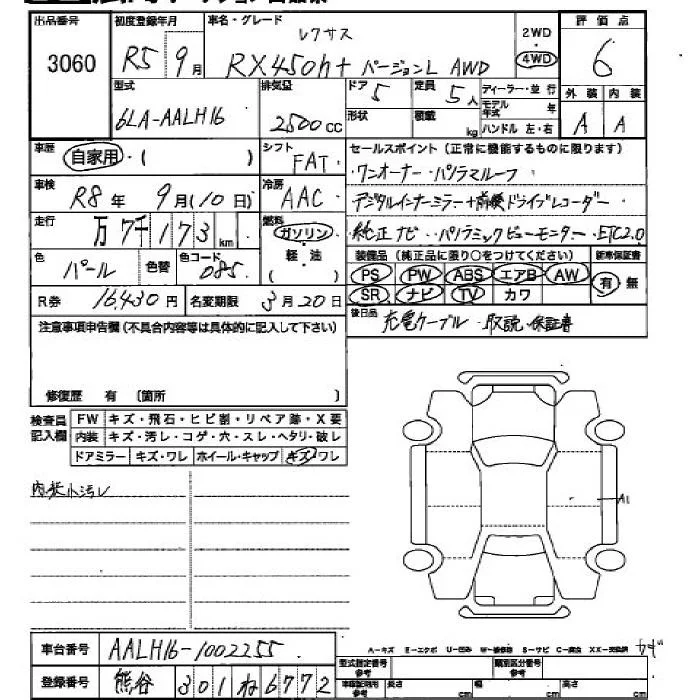 出品番号 初度登録年月 車名・グレード 2WD 評価点
3060 R5 9月 レクサス RX450h+ バージョンL AWD 4WD 6
型式 排気量 ドア 5 定員 5人 ディーラー・並行 外装 内装
6LA-AALH16 2500cc 形状 積載 kg モデル年式 年 ハンドル 左・右 A A
車歴 自家用・( ) シフト FAT セールスポイント(正常に機能するものに限ります)
・ワンオーナー・パノラマルーフ
車検 R8年 9月(10日) 冷房 AAC デジタルインナーミラー+前後ドライブレコーダー
走行 万7千173km 燃料 ガソリン・軽・油( ) 純正ナビ・パノラミックビューモニター・ETC2.0
色 パール 色替 色コード 085 装備品(純正品に限り○をつけてください) 新車保証書
PS PW ABS エアB AW 有・無
R券 16,430円 名変期限 3月20日 SR ナビ TV カワ
注意事項申告欄(不具合内容等は具体的に記入して下さい) 後日品 充電ケーブル・取説・保証書
修復歴 有 〔箇所 〕
検査員記入欄 FW キズ・飛石・ヒビ割・リペア跡・X要
内装 キズ・汚レ・コゲ・穴・スレ・ヘタリ・破レ
ドアミラー キズ・ワレ ホイール・キャップ キズ・ワレ
内装小汚レ
A1
車台番号 AALH16-1002255
A-キズ E-エクボ U-凹み W-補修跡 S-サビ C-腐食 XX-交換済
登録番号 熊谷 301 ね 6772
型式指定番号 類別区分番号
車検証利用参考 長さ cm 幅 cm 高さ cm